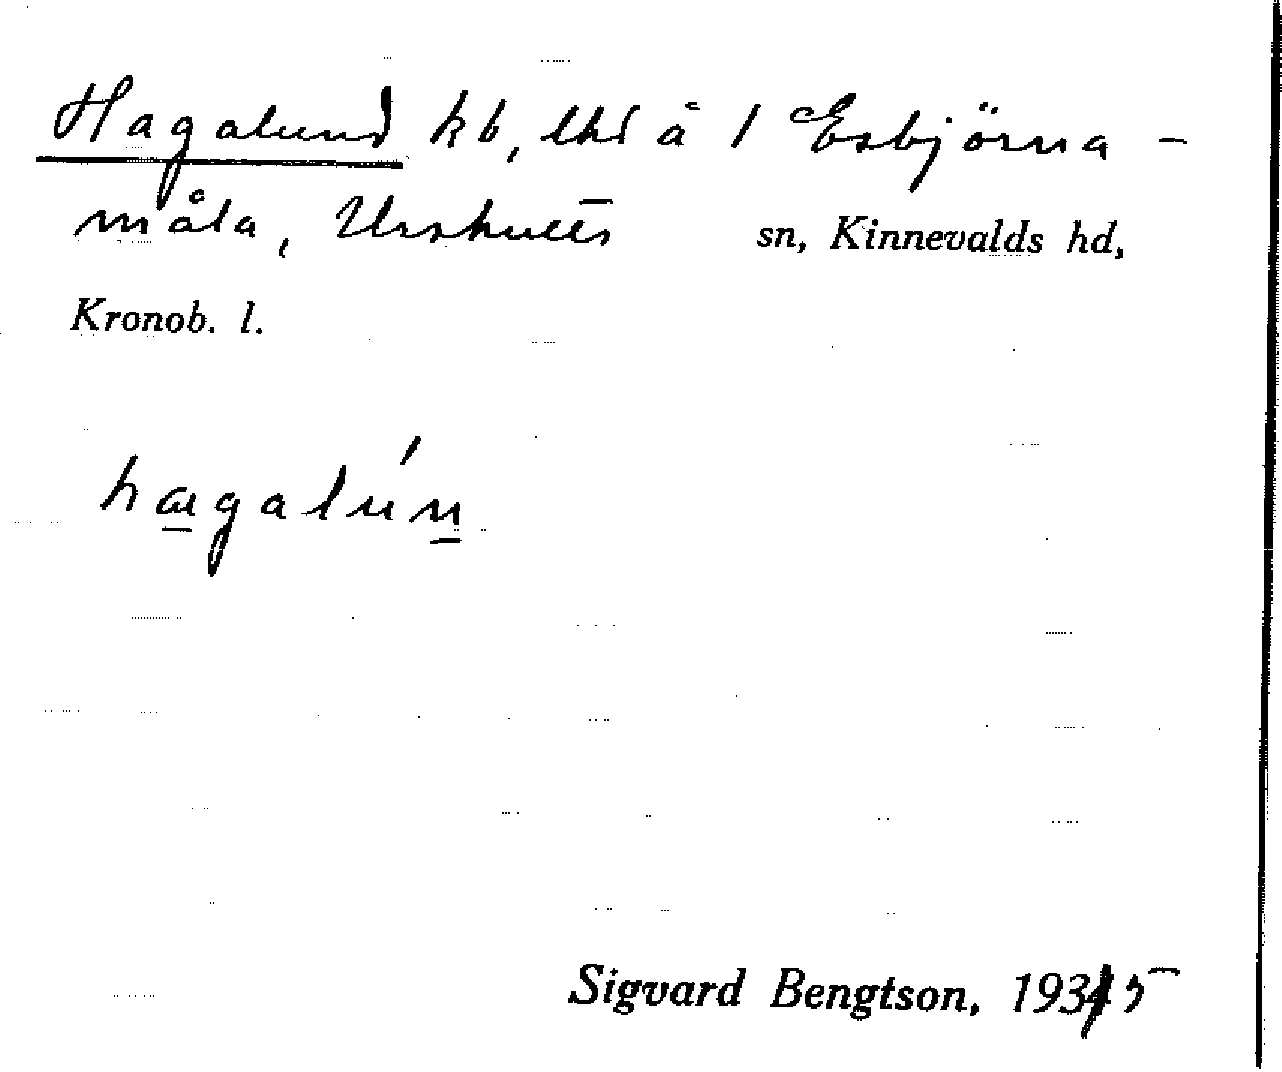 Hagalund kb, lhd å 1 Esbjörna-
måla, Urshults sn, Kinnevalds hd,
Kronob. l.
hægalún
Sigvard Bengtson, 1935